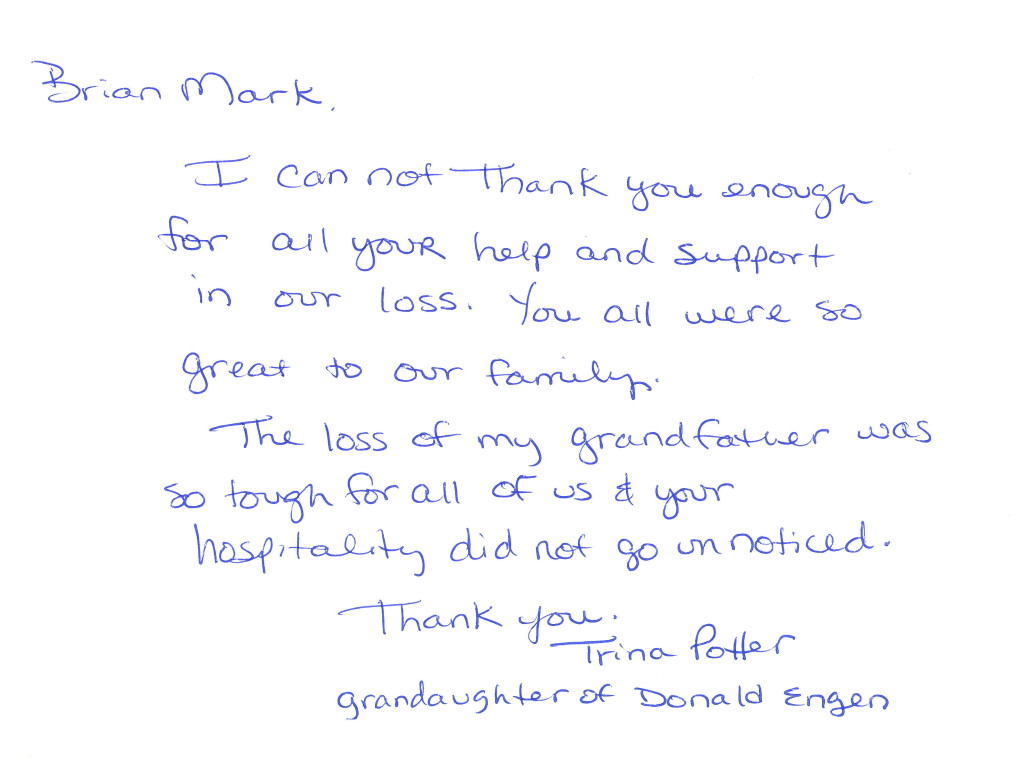 Brian Mark,
I can not thank you enough
for all your help and support
in our loss. You all were so
great to our family.
The loss of my grandfather was
so tough for all of us & your
hospitality did not go unnoticed.
Thank you.
Trina Potter
grandaughter of Donald Engen